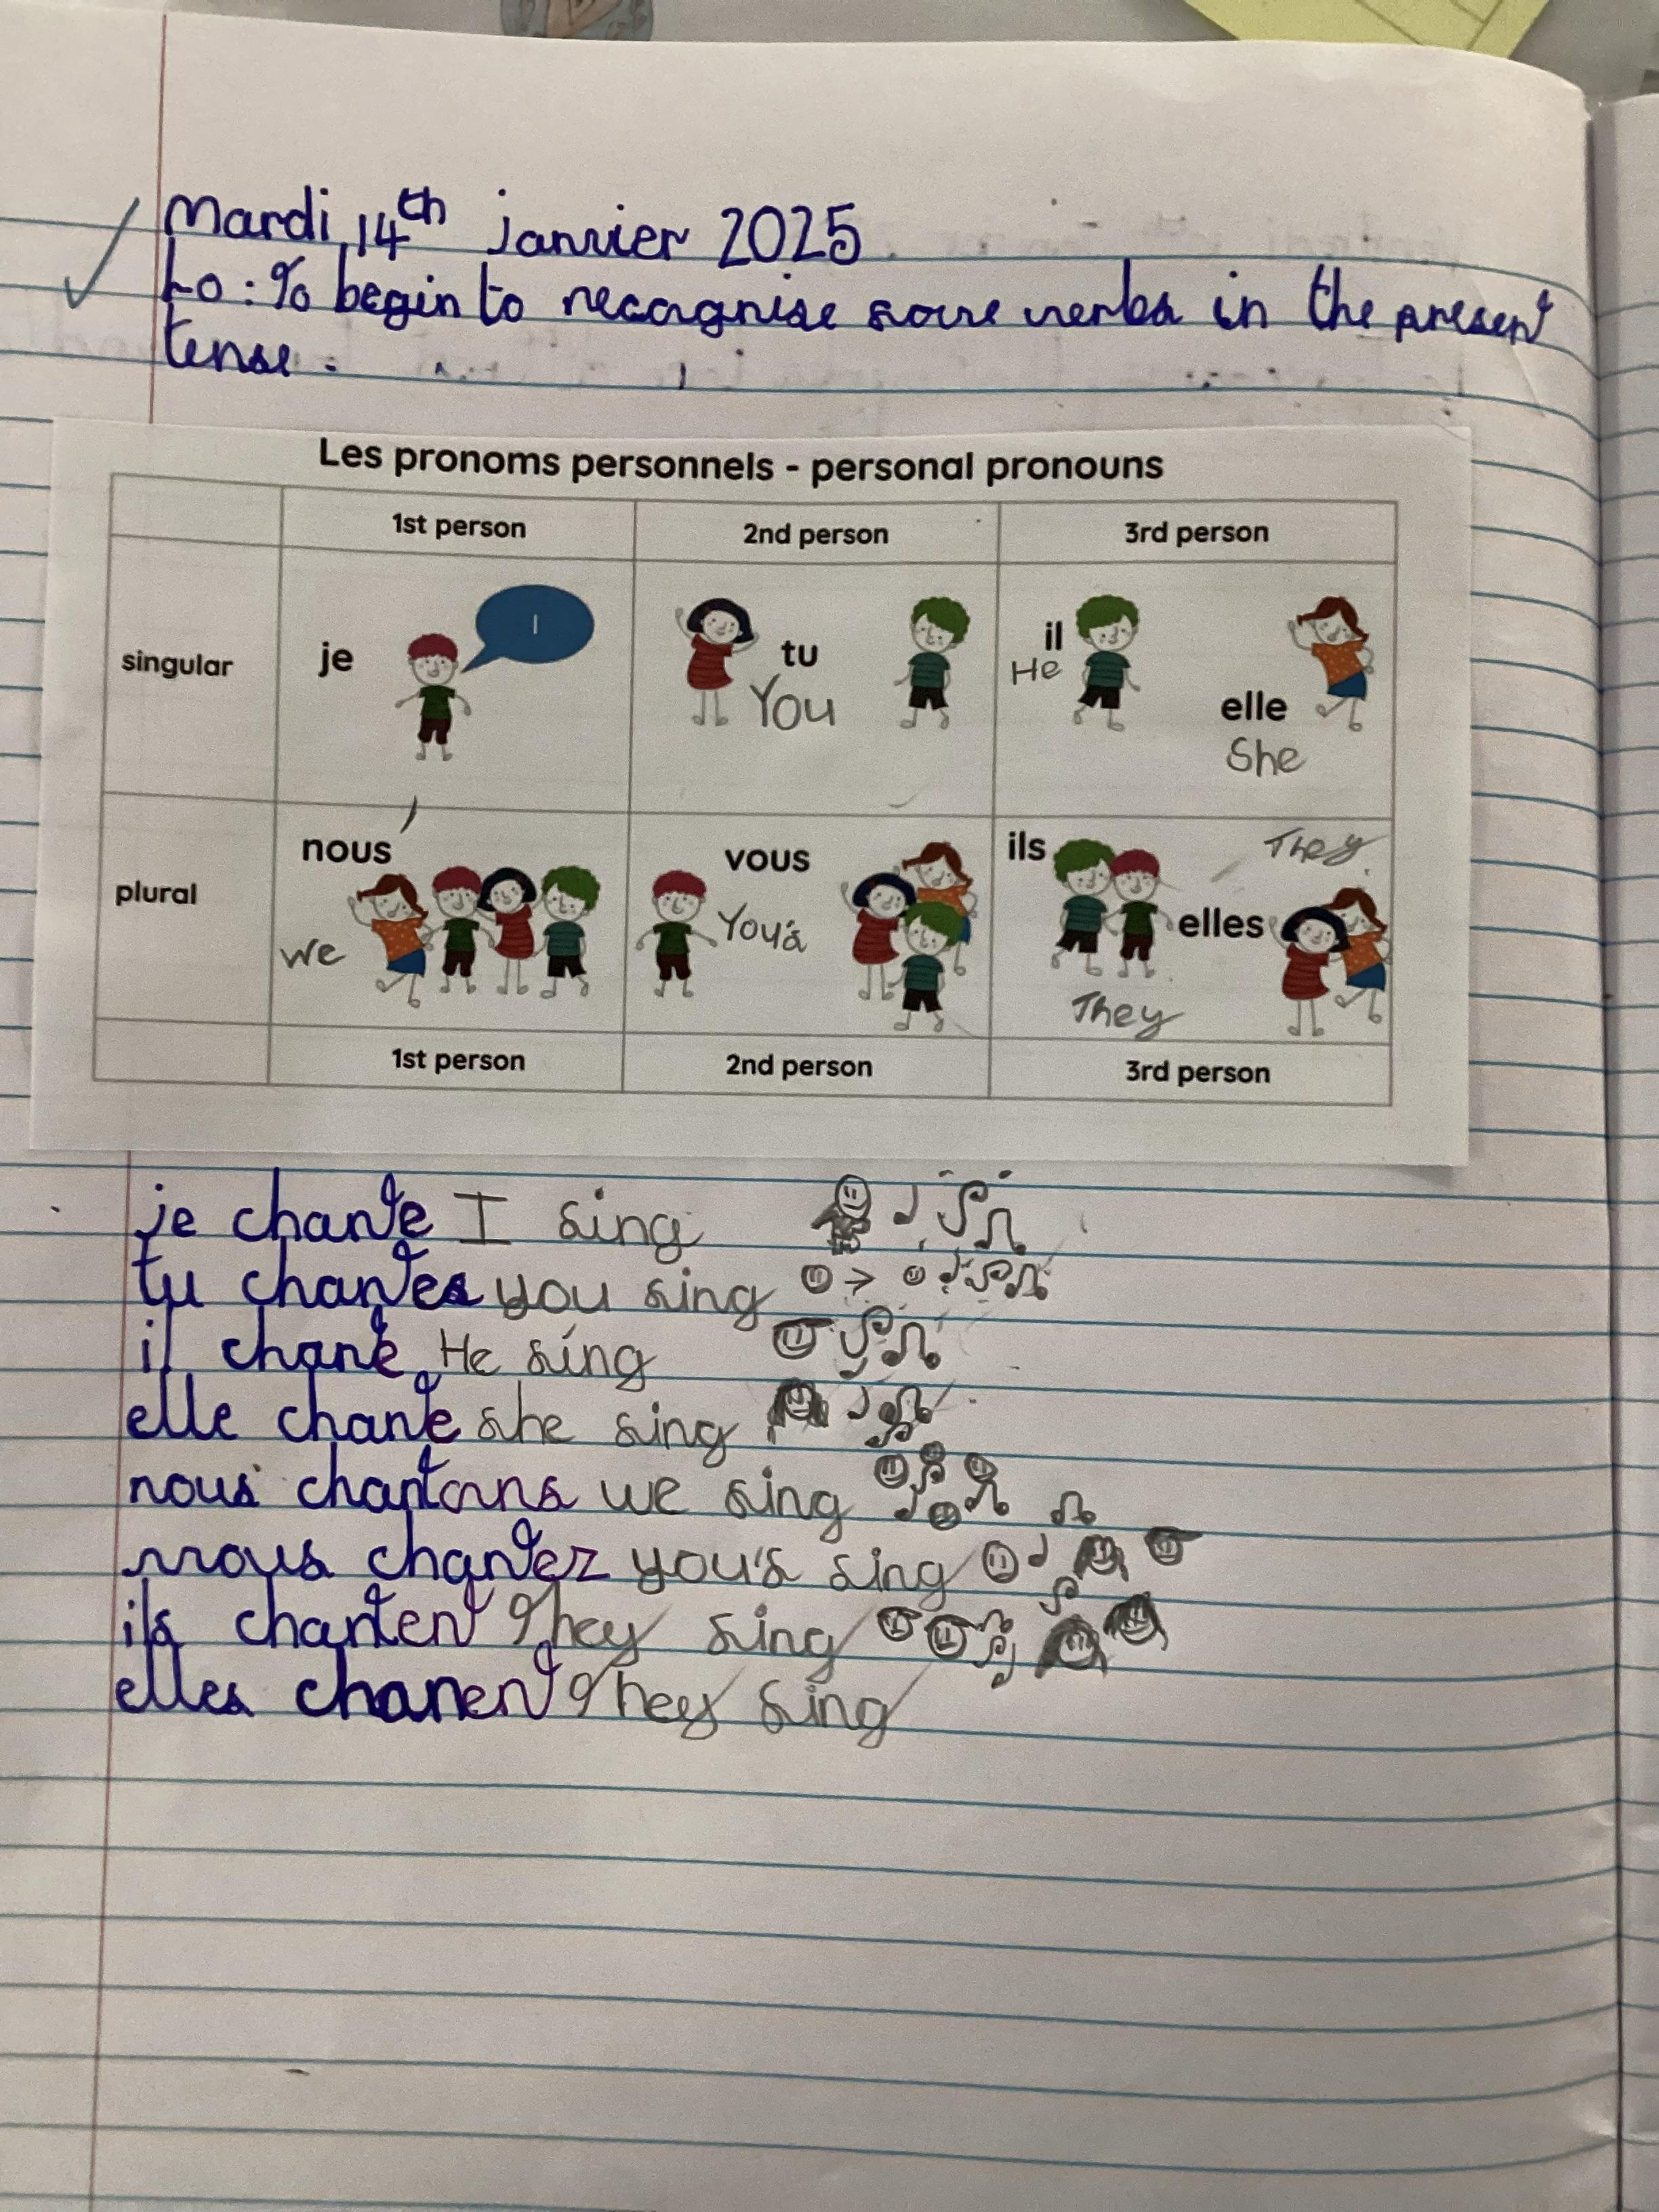 Mardi, 14th janvier 2025
Lo: To begin to recognise some verbs in the present
tense.
Les pronoms personnels - personal pronouns
1st person 2nd person 3rd person
singular je I tu You il He elle She
plural nous we vous You's ils They elles They
1st person 2nd person 3rd person
je chante I sing
tu chantes you sing
il chante He sing
elle chante she sing
nous chantons we sing
vous chantez you's sing
ils chantent They sing
elles chanent They sing